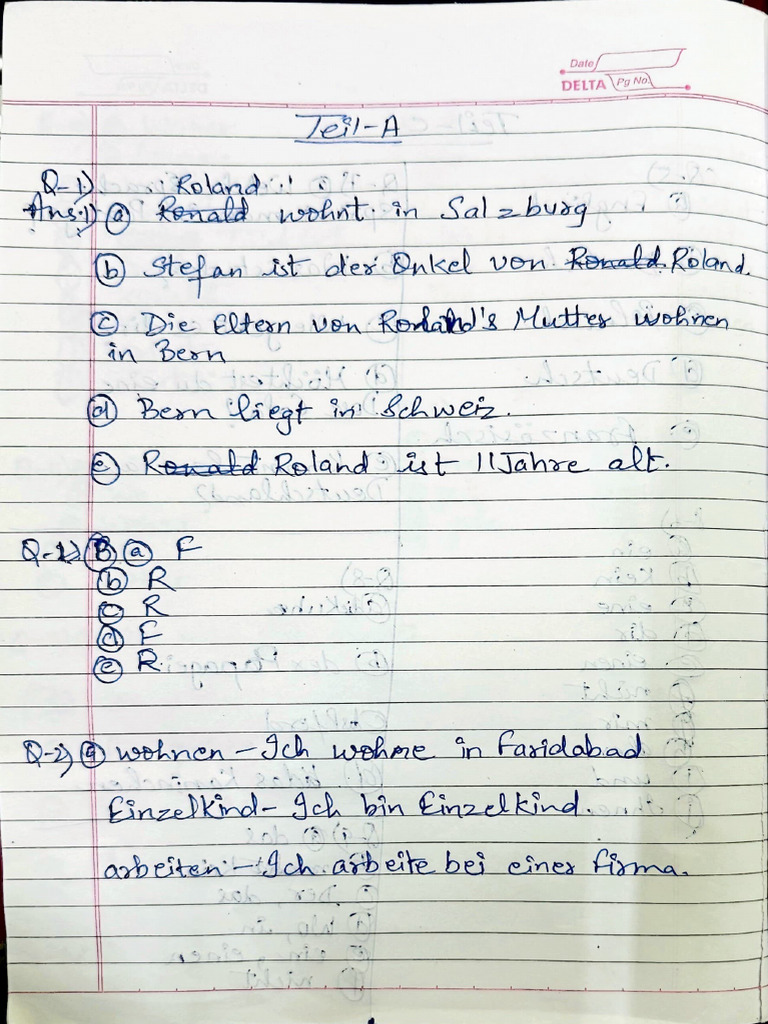 Date
DELTA Pg No.
Teil-A
Q-1) Roland
Ans:1) (a) Ronald wohnt in Salzburg
(b) Stefan ist der Onkel von Ronald. Roland.
(c) Die Eltern von Roland's Mutter wohnen
in Bern
(d) Bern liegt in Schweiz.
(e) Ronald Roland ist 11 Jahre alt.
(B) (a) F
(b) R
(c) R
(d) F
(e) R.
Q-2) (a) wohnen - Ich wohne in Faridabad
Einzelkind - Ich bin Einzelkind.
arbeiten - Ich arbeite bei einer firma.